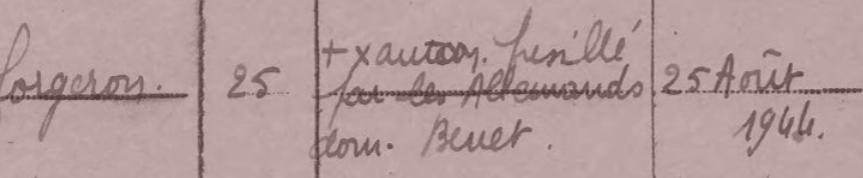 forgeron. 25 + x autom. fusillé
par les Allemands 25 Août
dom. Benet. 1944.